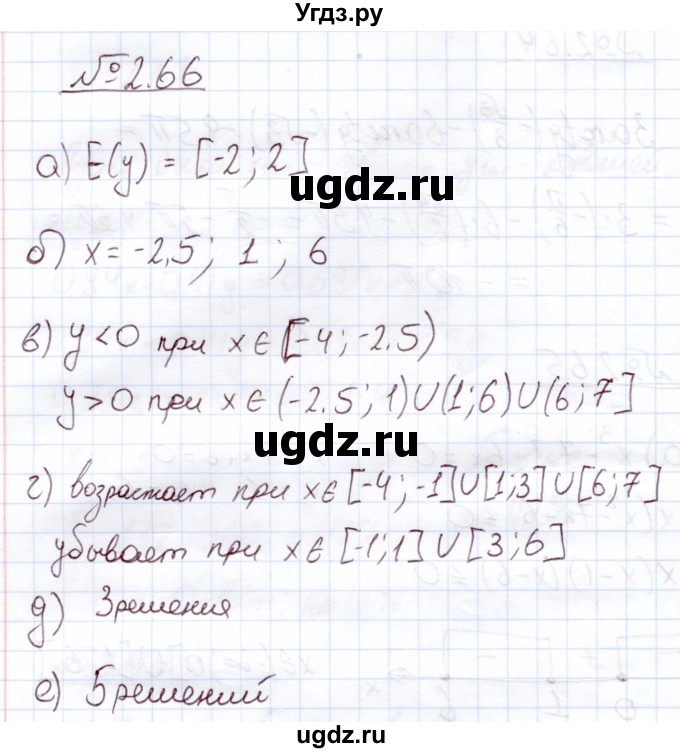 Угдз.ру
№2.66
а) E(y) = [-2; 2]
ugdz.ru
б) x = -2,5; 1; 6
в) y<0 при x∈[-4; -2.5)
y>0 при x∈(-2.5; 1)∪(1;6)∪(6;7]
ugdz.ru
г) возрастает при x∈[-4; -1]∪[1;3]∪[6;7]
убывает при x∈[-1;1]∪[3;6]
д) 3 решения
ugdz.ru
е) 5 решений
ugdz.ru